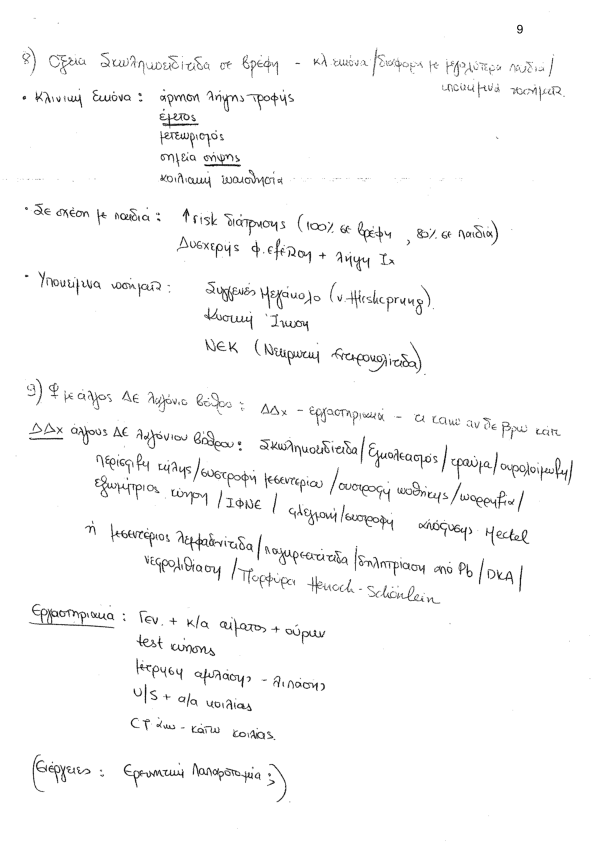 9
8) Οξεία Σκωληκοειδίτιδα σε βρέφη - κλ εικόνα / διαφορη με μεγαλύτερα παιδιά /
υποκειμενα νοσήματ.
• Κλινική Εικόνα : άρνηση λήψης τροφής
έμετος
μετεωρισμός
σημεία σήψης
κοιλιακή ευαισθησία
• Σε σχέση με παιδιά : ↑risk διάτρησης (100% σε βρέφη , 80% σε παιδιά)
Δυσχερής φ. εξέταση + λήψη Ιx
• Υποκείμενα νοσήματα : Συγγενές Μεγάκολο (ν. Hirshsprung)
Κυστική Ίνωση
ΝΕΚ (Νεκρωτική Εντεροκολίτιδα)
9) Ψ με άλγος ΔΕ λαγόνιο βόθρο : ΔΔx - εργαστηριακά - τι κανω αν δε βρω κάτι
ΔΔx άλγους ΔΕ λαγόνιου βόθρου : Σκωληκοειδίτιδα / Εγκολεασμός / τραύμα / ουρολοίμωξη /
περίσφιξη κήλης / συστροφή μεσεντερίου / συστροφή ωοθήκης / ωορρηξία /
εξωμήτριος κύηση / ΙΦΝΕ / φλεγμονή / συστροφή απόφυσης Meckel
ή μεσεντέριος λεμφαδενίτιδα / παγκρεατίτιδα / δηλητρίαση από Pb / DKA /
νεφρολιθίαση / Πορφύρα Henoch-Schönlein
Εργαστηριακά : Γεν. + κ/α αίματος + ούρων
test κύησης
μέτρηση αμυλάσης - λιπάσης
U/S + α/α κοιλίας
CT άνω - κάτω κοιλίας.
(Ενέργειες : Ερευνητική Λαπαροτομία ;)